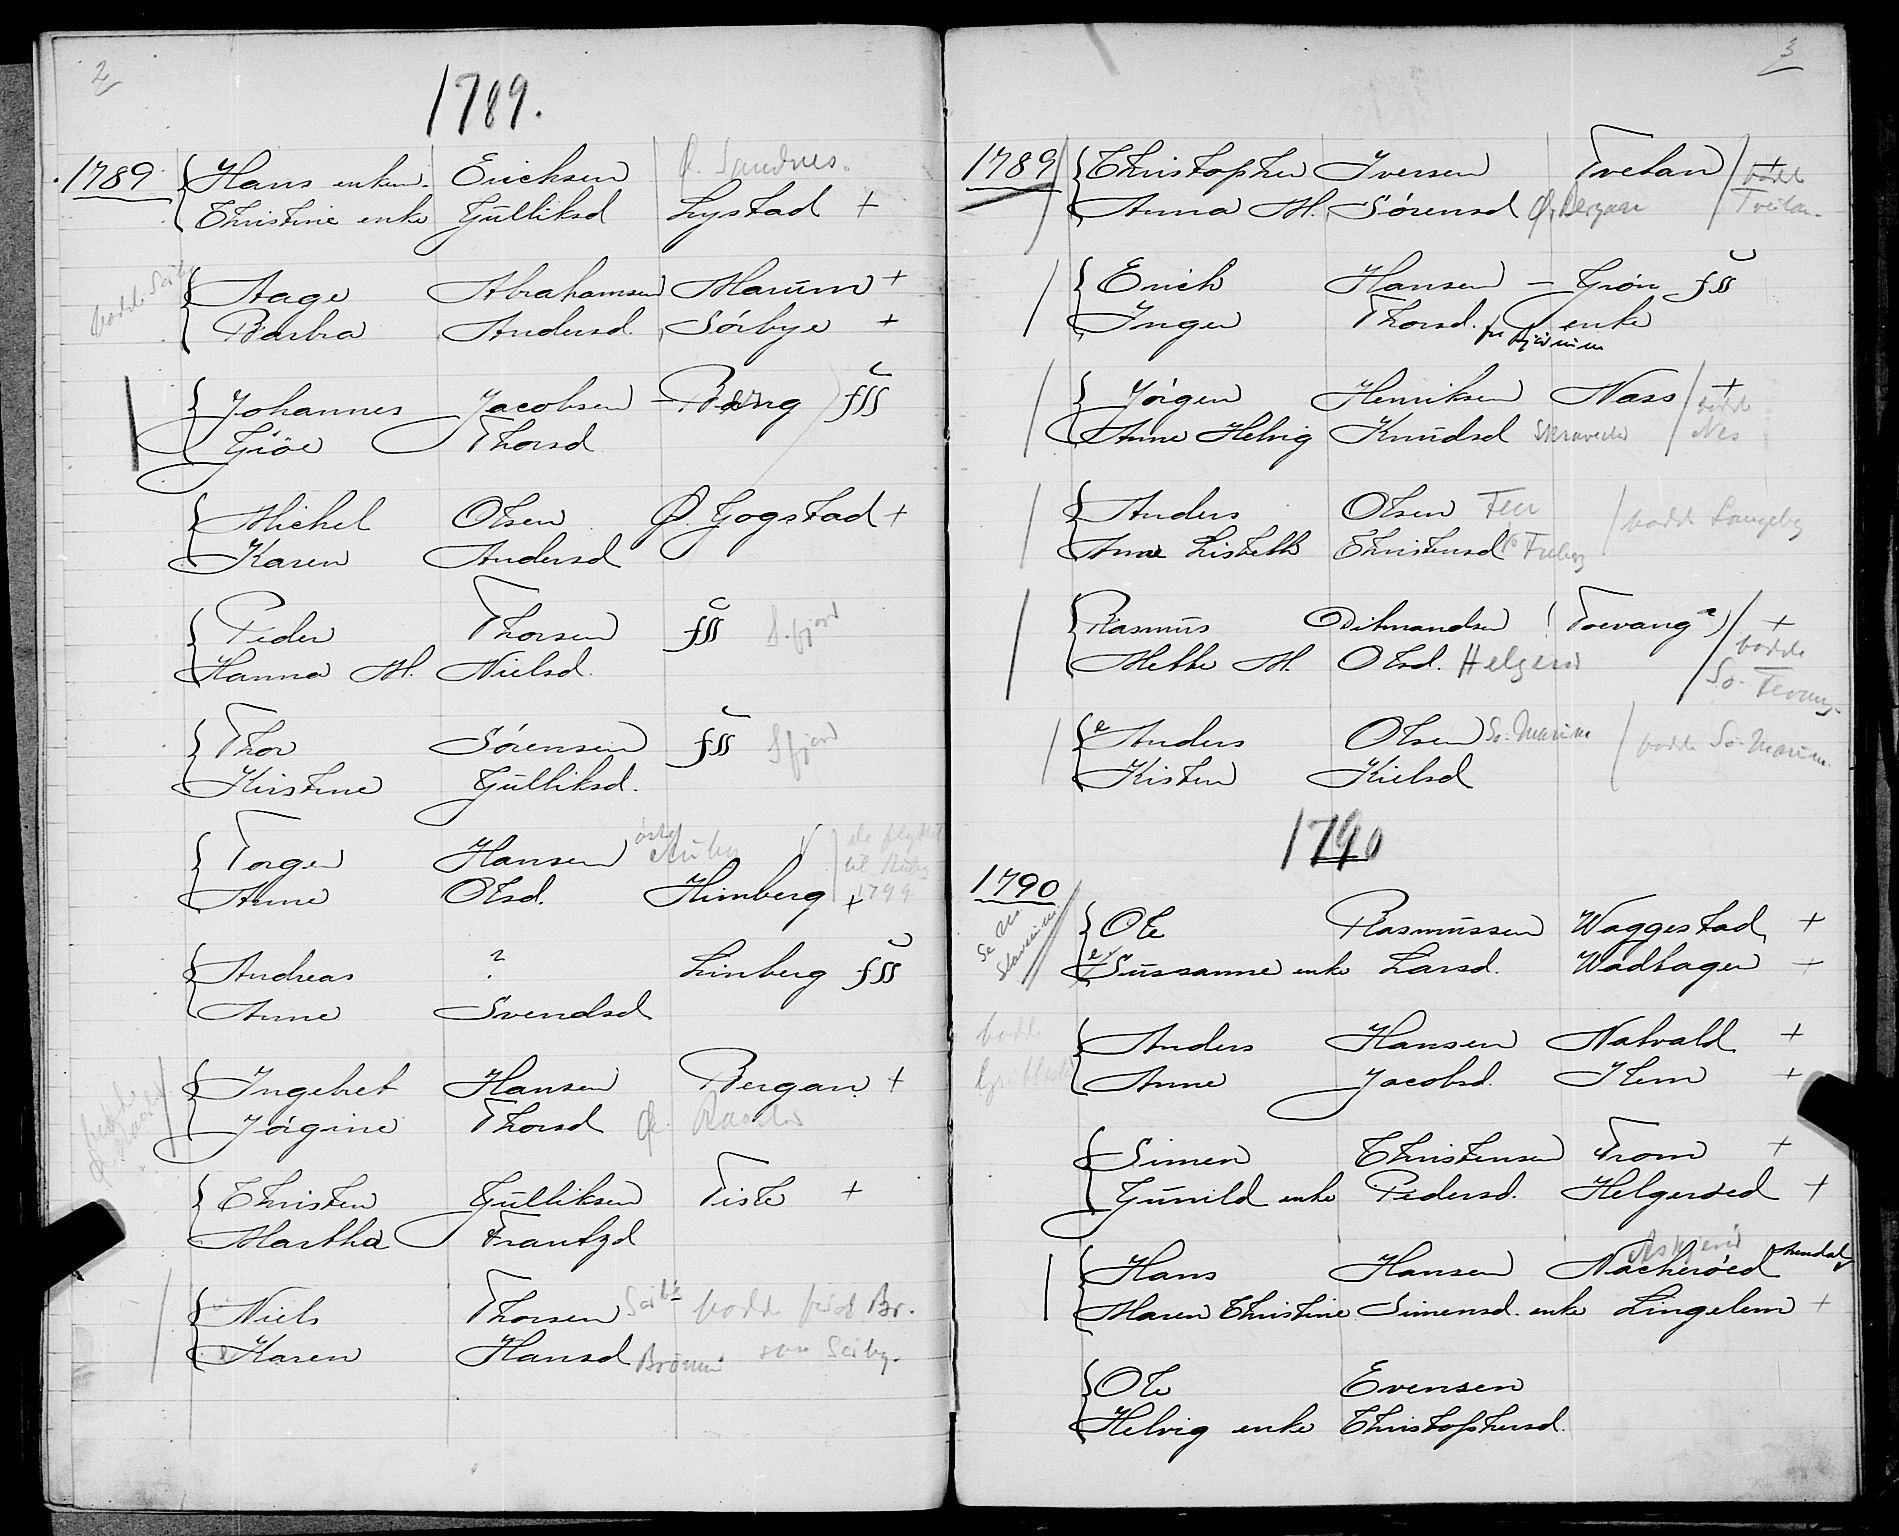 2
1789.
1789 Hans enkem. Erichsen Ø. Sandnes.
Christine enke Gulliksd Lystad +
bodde Sörby
Aage Abrahamsen Marum +
Barbra Andersd. Sörbye +
Johannes Jacobsen Berg fss
Giöe Thorsd
Michel Olsen Ø. Gogstad +
Karen Andersd
Peder Thorsen fss S.fjord
Hanna M. Nielsd.
Thor Sörensen fss Sfjord
Kirstine Gulliksd.
Torger Hansen de flyttet
til
Anne Olsd. Himberg + 1799
Andreas ? Linberg fss
Anne Svendsd
Ingebret Hansen Bergan +
Jörgine Thorsd Ø.
Christen Gulliksen Tiste +
Martha Frantzd
Niels Thorsen bodde først Br.
Karen Hansd Brönnu som Seiby.
3
1789 Christopher Iversen Tvetan / + bodde
Anna M. Sörensd Ø. Bergan Tvetan
Erich Hansen – Grön fss
Inger Thorsd. enke
Jörgen Henriksen Næss / + bodde
Anne Helvig Knudsd Nes
Anders Olsen Fen / bodde Langeby
Anne Lisbeth Christensd
Rasmus Ditmandsen (Toevang?) / +
Mette M. Olsd. Helgerø bodde
So. Tevang
Anders Olsen So. Marum / bodde So. Marum.
Kisten Kielsd
1790
1790
Ole Rasmussen Waggestad, +
Sussanne enke Larsd. Wadhagen +
bodde
Anders Hansen Natvald +
Anne Jacobsd. Hem +
Simen Christensen From +
Gunild enke Pedersd. Helgeroed +
Hans Hansen Nacheröed
Maren Christine Simensd. enke Lingelem +
Ole Evensen
Helvig enke Christophersd.